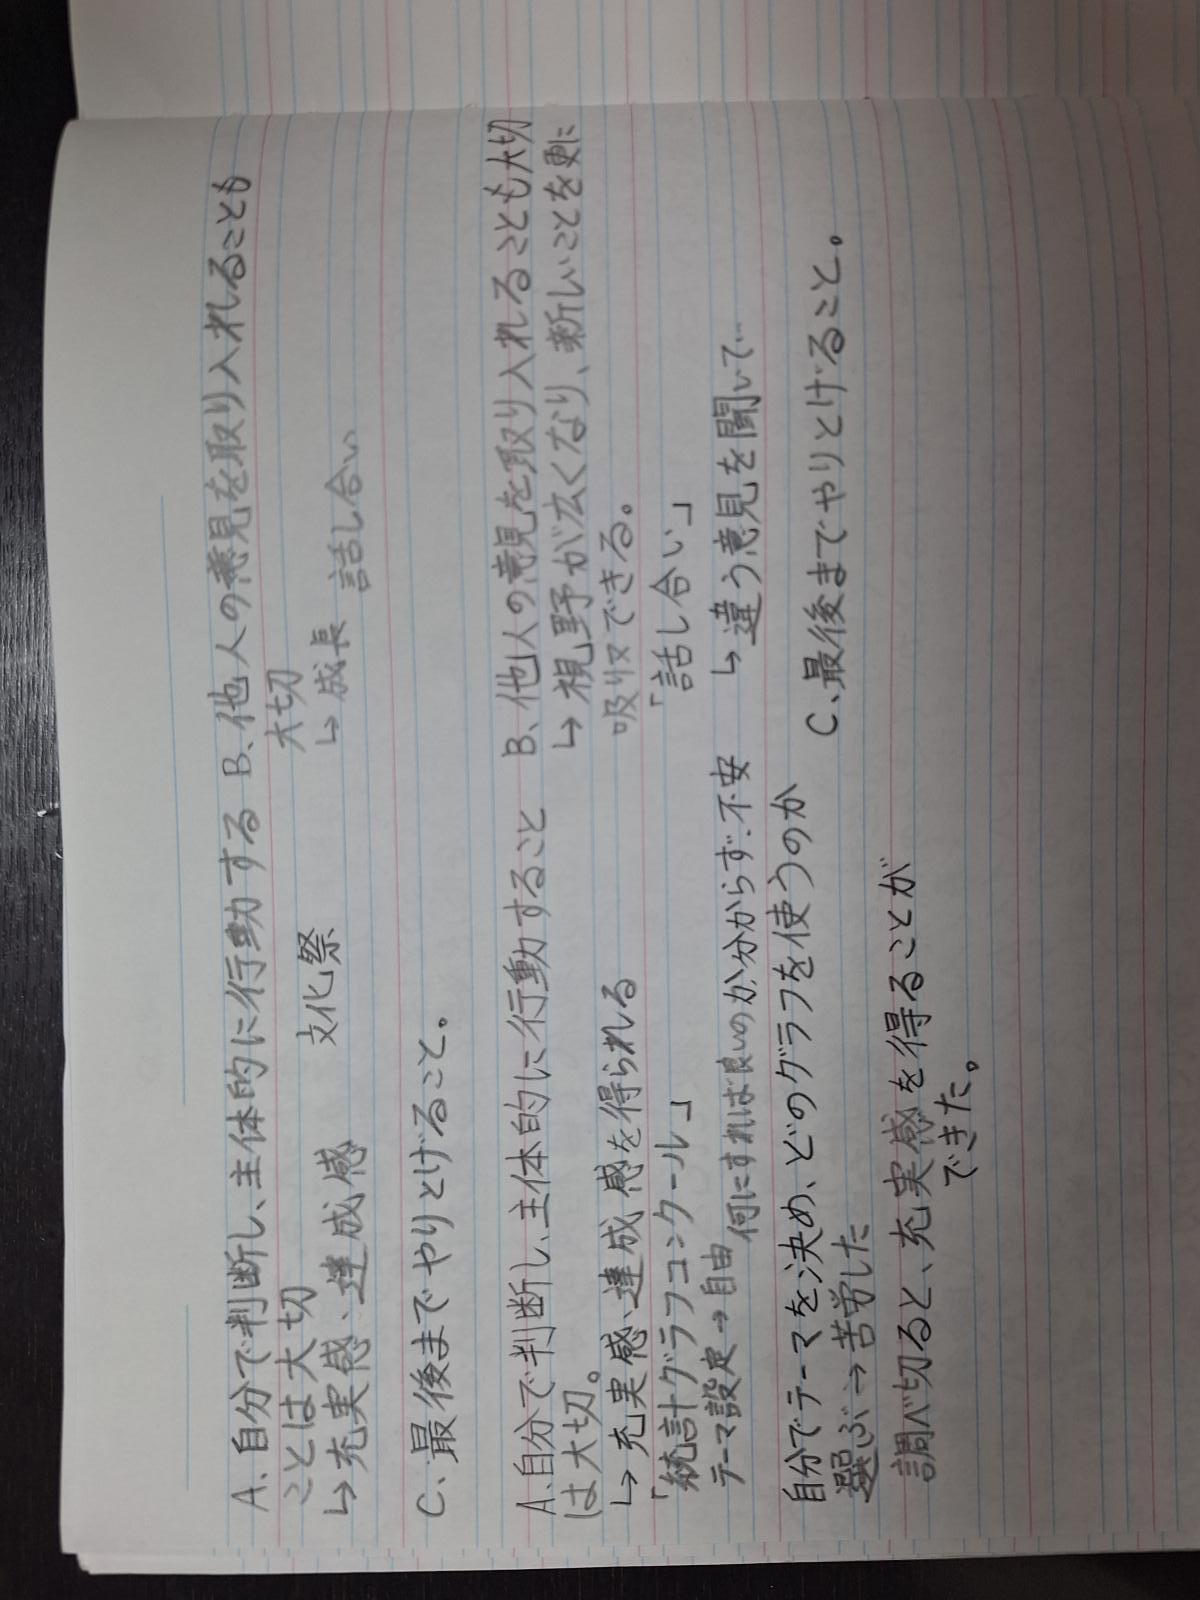 A、自分で判断し、主体的に行動する
ことは大切
↳充実感、達成感
文化祭
B、他人の意見を取り入れることも
大切
↳成長
話し合い
C、最後までやりとげること。
A、自分で判断し、主体的に行動すること
は大切。
↳充実感、達成感を得られる
「統計グラフコンクール」
テーマ設定→自由
何にすれば良いのか分からず不安
自分でテーマを決め、どのグラフを使うのか
選ぶ→苦労した
調べ切ると、充実感を得ることが
できた。
B、他人の意見を取り入れることも大切
↳視野が広くなり、新しいことを更に
吸収できる。
「話し合い」
↳違う意見を聞いて…
C、最後までやりとげること。